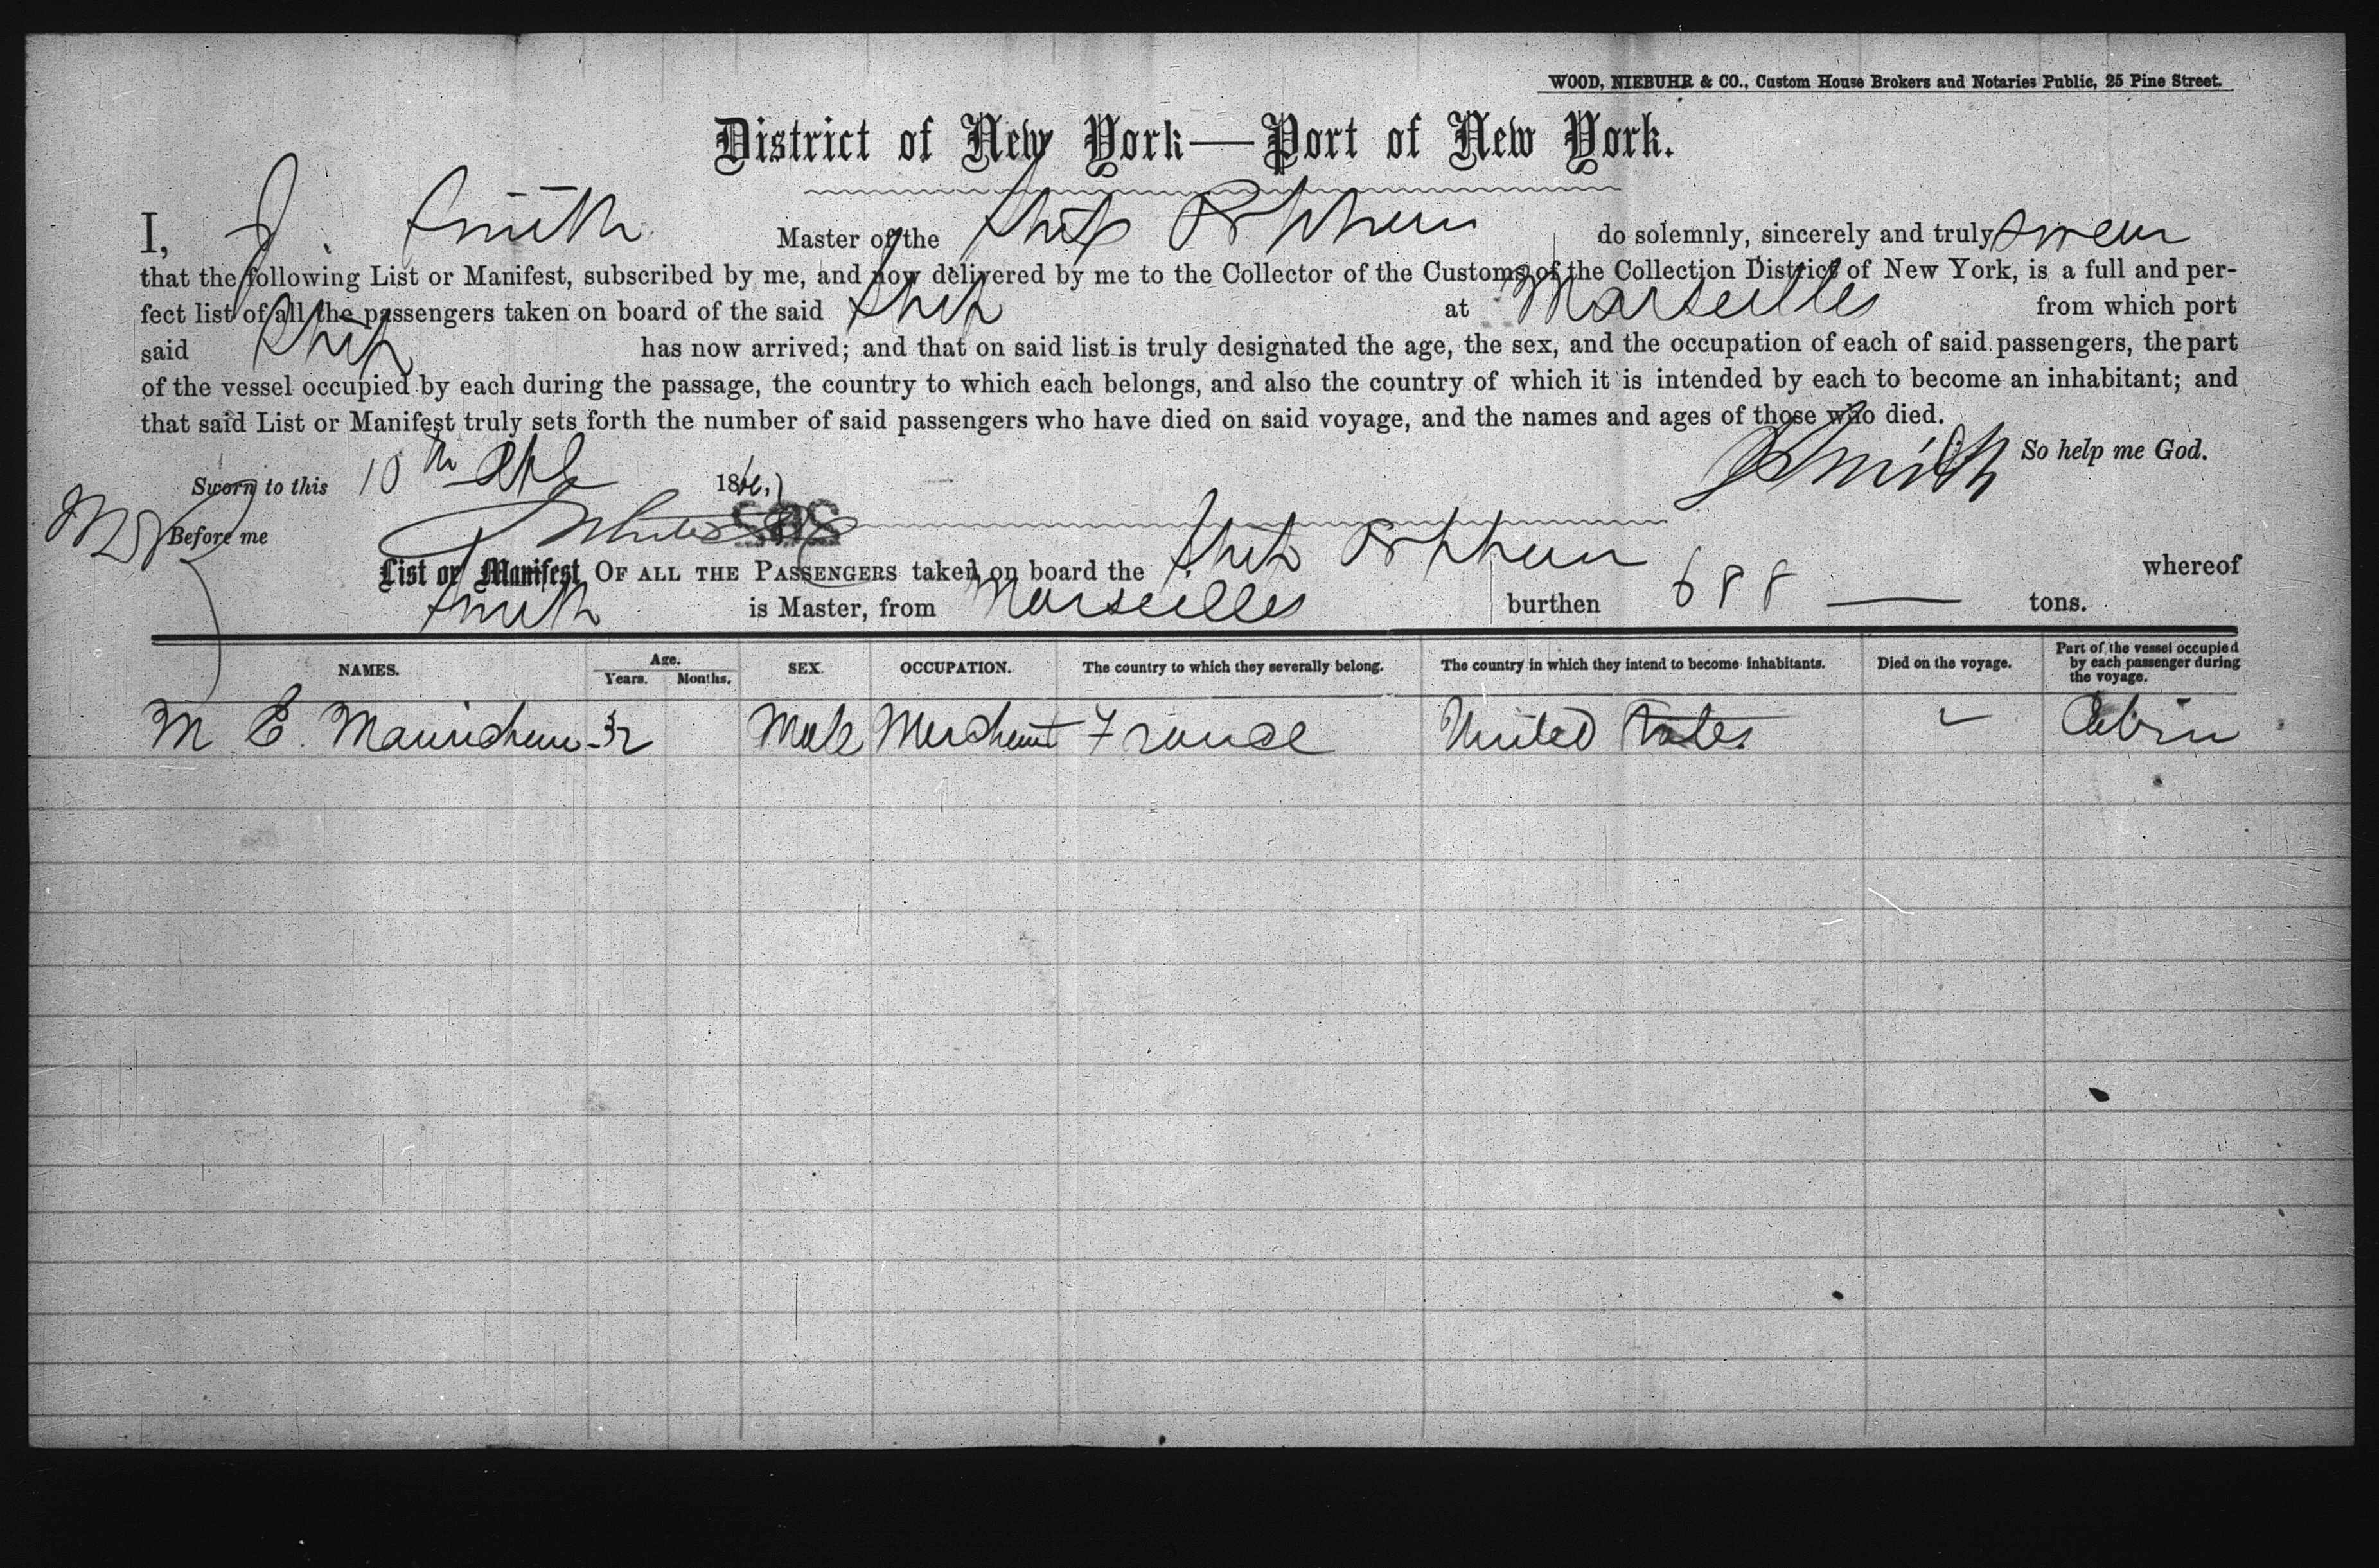 WOOD, NIEBUHR & CO., Custom House Brokers and Notaries Public, 25 Pine Street.
District of New York—Port of New York.
I, J. Smith Master of the Ship do solemnly, sincerely and truly swear
that the following List or Manifest, subscribed by me, and now delivered by me to the Collector of the Customs of the Collection District of New York, is a full and per-
fect list of all the passengers taken on board of the said Ship at Marseilles from which port
said Ship has now arrived; and that on said list is truly designated the age, the sex, and the occupation of each of said passengers, the part
of the vessel occupied by each during the passage, the country to which each belongs, and also the country of which it is intended by each to become an inhabitant; and
that said List or Manifest truly sets forth the number of said passengers who have died on said voyage, and the names and ages of those who died.
J Smith So help me God.
Sworn to this 10th 186
Before me
List or Manifest OF ALL THE PASSENGERS taken on board the Ship whereof
Smith is Master, from Marseilles burthen 688 — tons.
NAMES. Age. Years. Months. SEX. OCCUPATION. The country to which they severally belong. The country in which they intend to become inhabitants. Died on the voyage. Part of the vessel occupied by each passenger during the voyage.
M E. 32 Male Merchant France United States Cabin